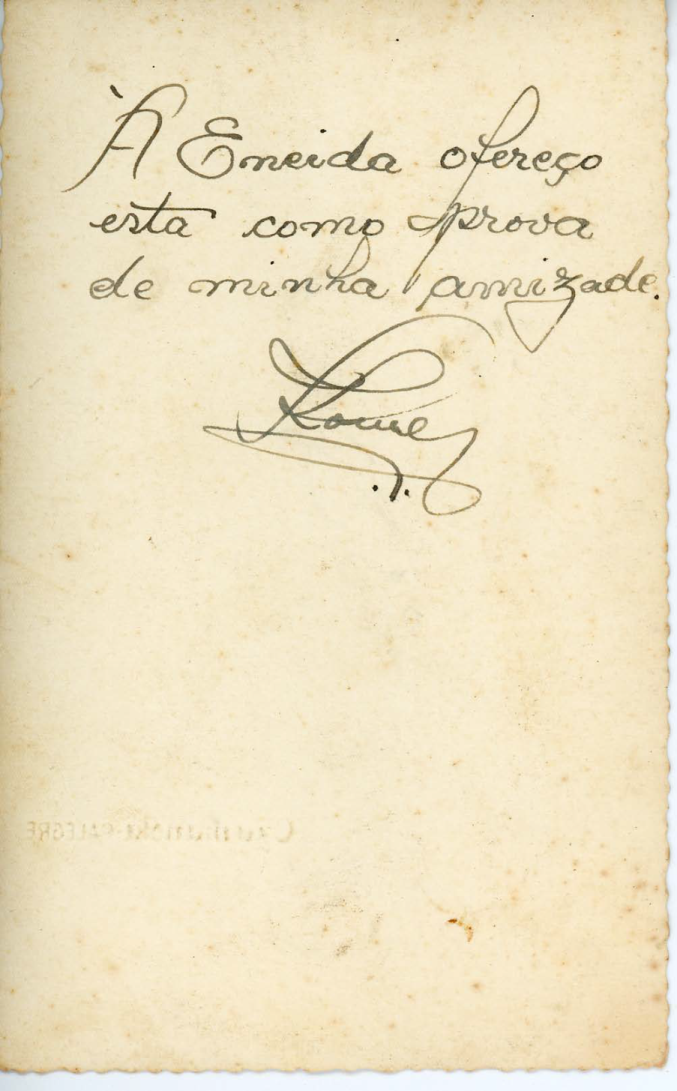 À Eneida ofereço
esta como prova
de minha amizade.